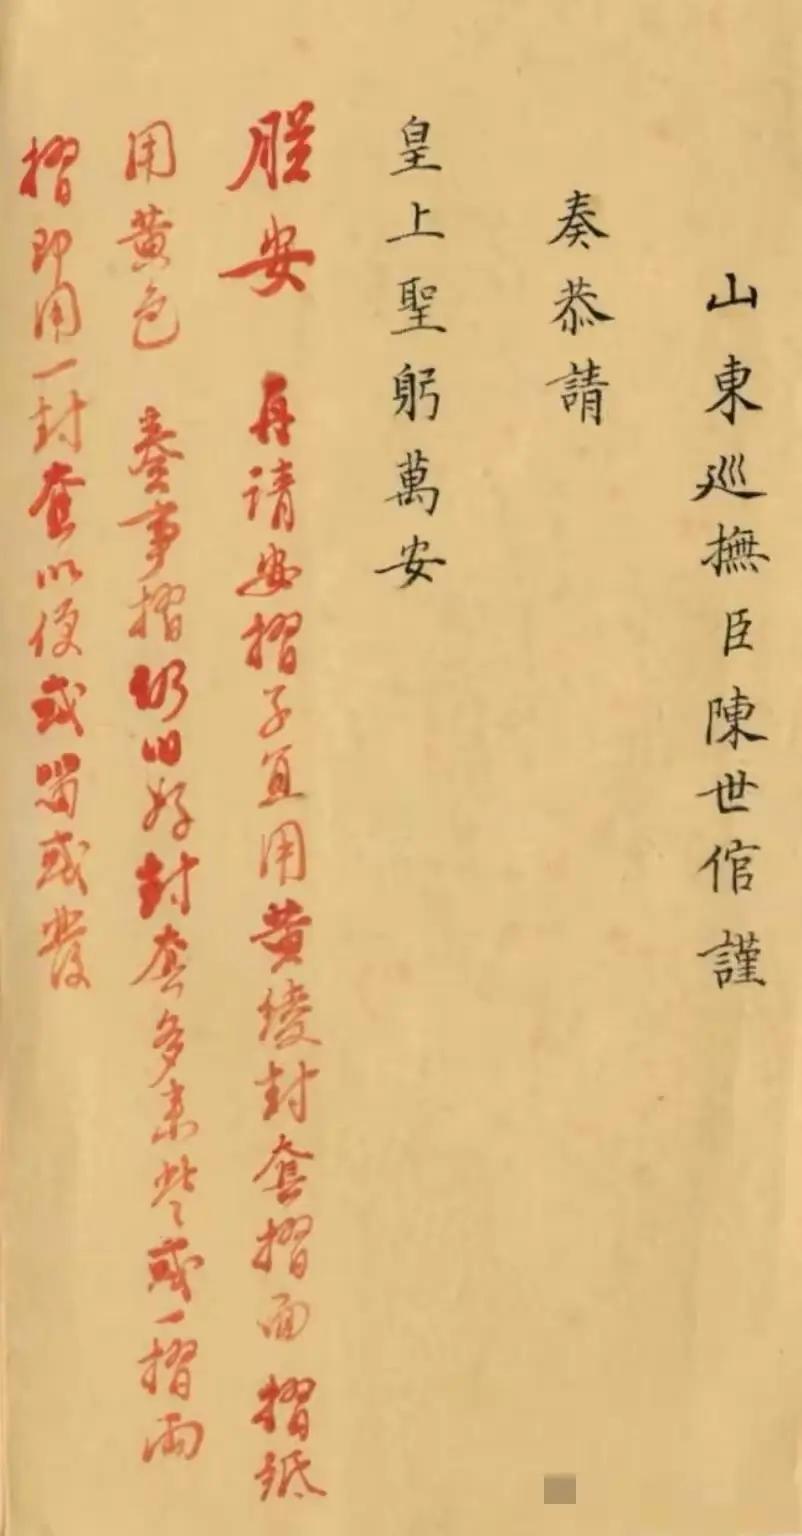 山東巡撫臣陳世倌謹
奏恭請
皇上聖躬萬安
朕安 再請安摺子宜用黄綾封套摺面摺紙
用黄色 奏事摺仍旧好封套多来些或一摺兩
摺即用一封套以便或留或發